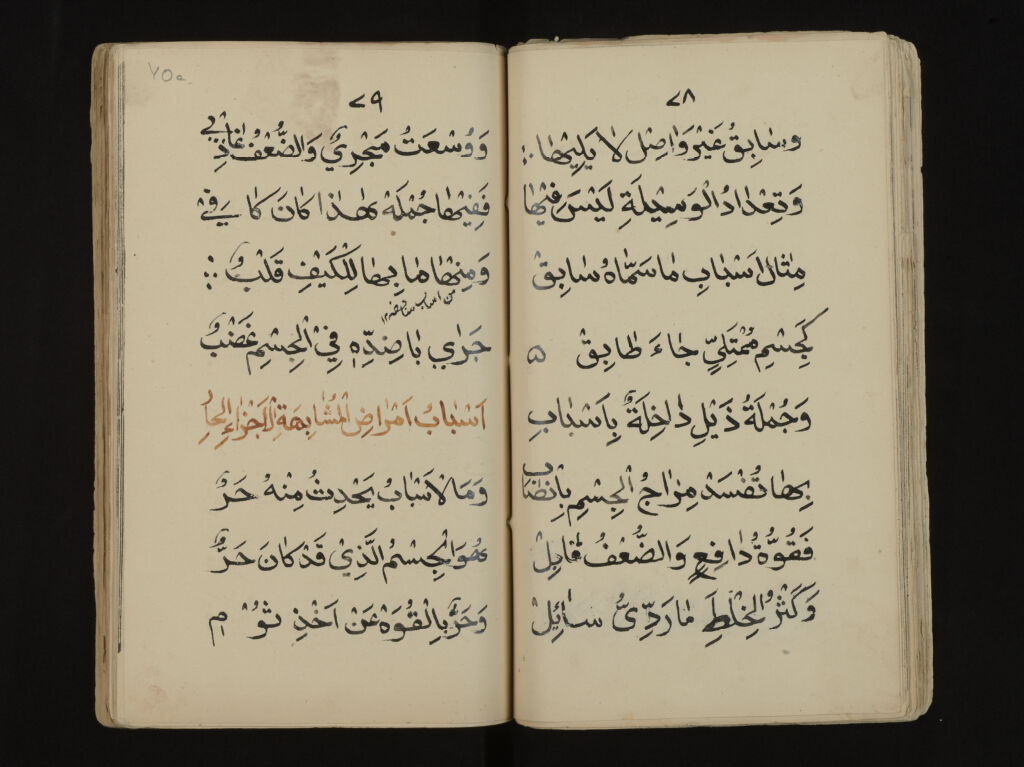 ٢٨
وَسَابِقُ غَيْرَ وَاصِلٍ لَا يَلِيْهَا
وَتِعْدَادُ الْوَسِيْلَةِ لَيْسَ فِيْهَا
مِثَال اَسْبَابِ مَا سَمَّاهُ سَابِقْ
كَجِسْمٍ مُمْتَلِيٍّ جَاءَ طَابِقْ ۵
وَجُمْلَةُ ذَيْلِ دَاخِلَةٌ بِاَسْبَابِ
بِهَا تُفْسَدْ مِزَاجُ الْجِسْمِ بِانْصَابِ
فَقُوَّةُ دَافِعٍ وَالضُّعْفُ قَابِلْ
وَكَثْرُ الْخِلْطِ مَا رَدِّىُّ سَائِلْ
٧٥a
٢٩
وَوُسْعَتُ مَجْرِيٌّ وَالضُّعْفُ غَاذِيْ
فَفِيْهَا جُمْلَةٌ بِهٰذَا كَانَ كَافِيْ
وَمِنْهَا مَا بِهَا لِلْكَيْفِ قَلْبٌ
من اسباب
جَرٰي بَا ضِدِّهٖ فِيْ الْجِسْمِ غَصْبٌ
اَسْبَابُ اَمْرَاضِ الْمُشَابِهَةِ الْاَجْزَاءِ الْحَارُ
وَمَا لْاَسْبَابُ يَحْدِثُ مِنْهُ حَرٌّ
هُوَ الْجِسْمُ الَّذِيْ قَدْ كَانَ حَرٌّ
وَحَرٌّ بِالْقُوَةْ عَنْ اَخْذِ ثَوُمْ م